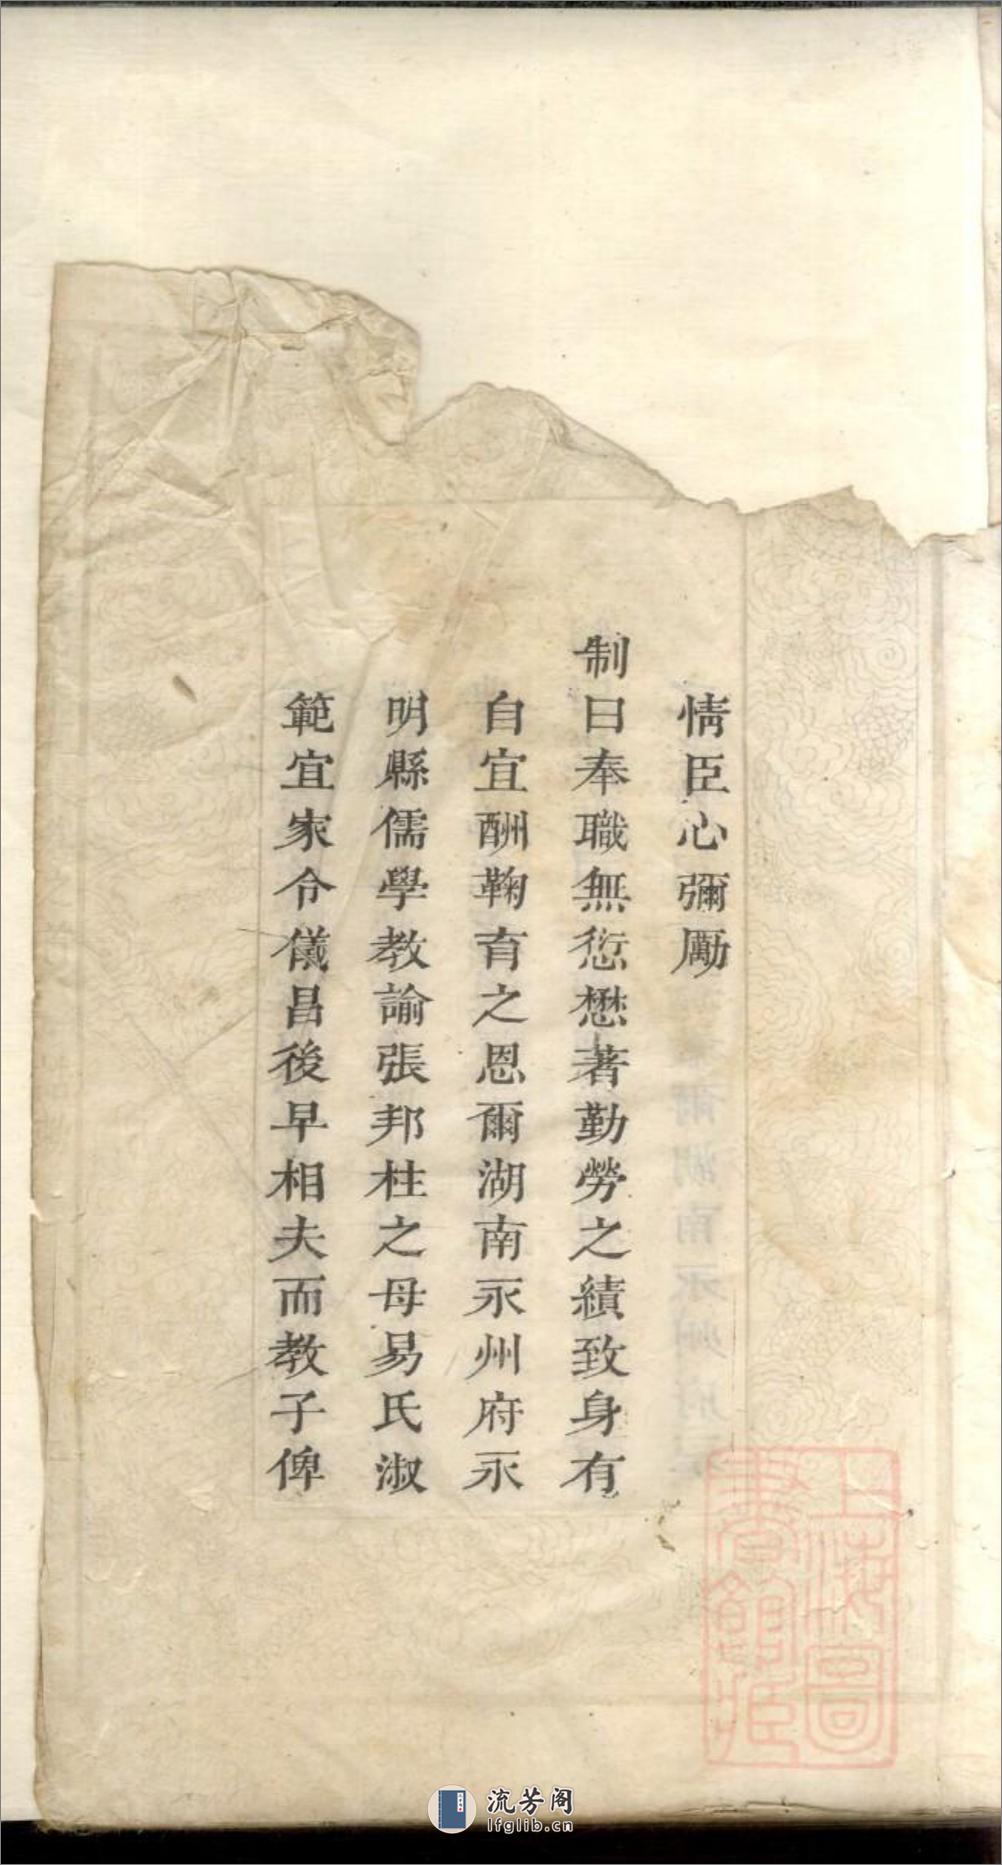 情臣心彌勵
制曰奉職無愆懋著勤勞之績致身有
自宜酬鞠育之恩爾湖南永州府永
明縣儒學教諭張邦柱之母易氏淑
範宜家令儀昌後早相夫而教子俾
上海圖
書館藏
流芳阁
lfglib.cn